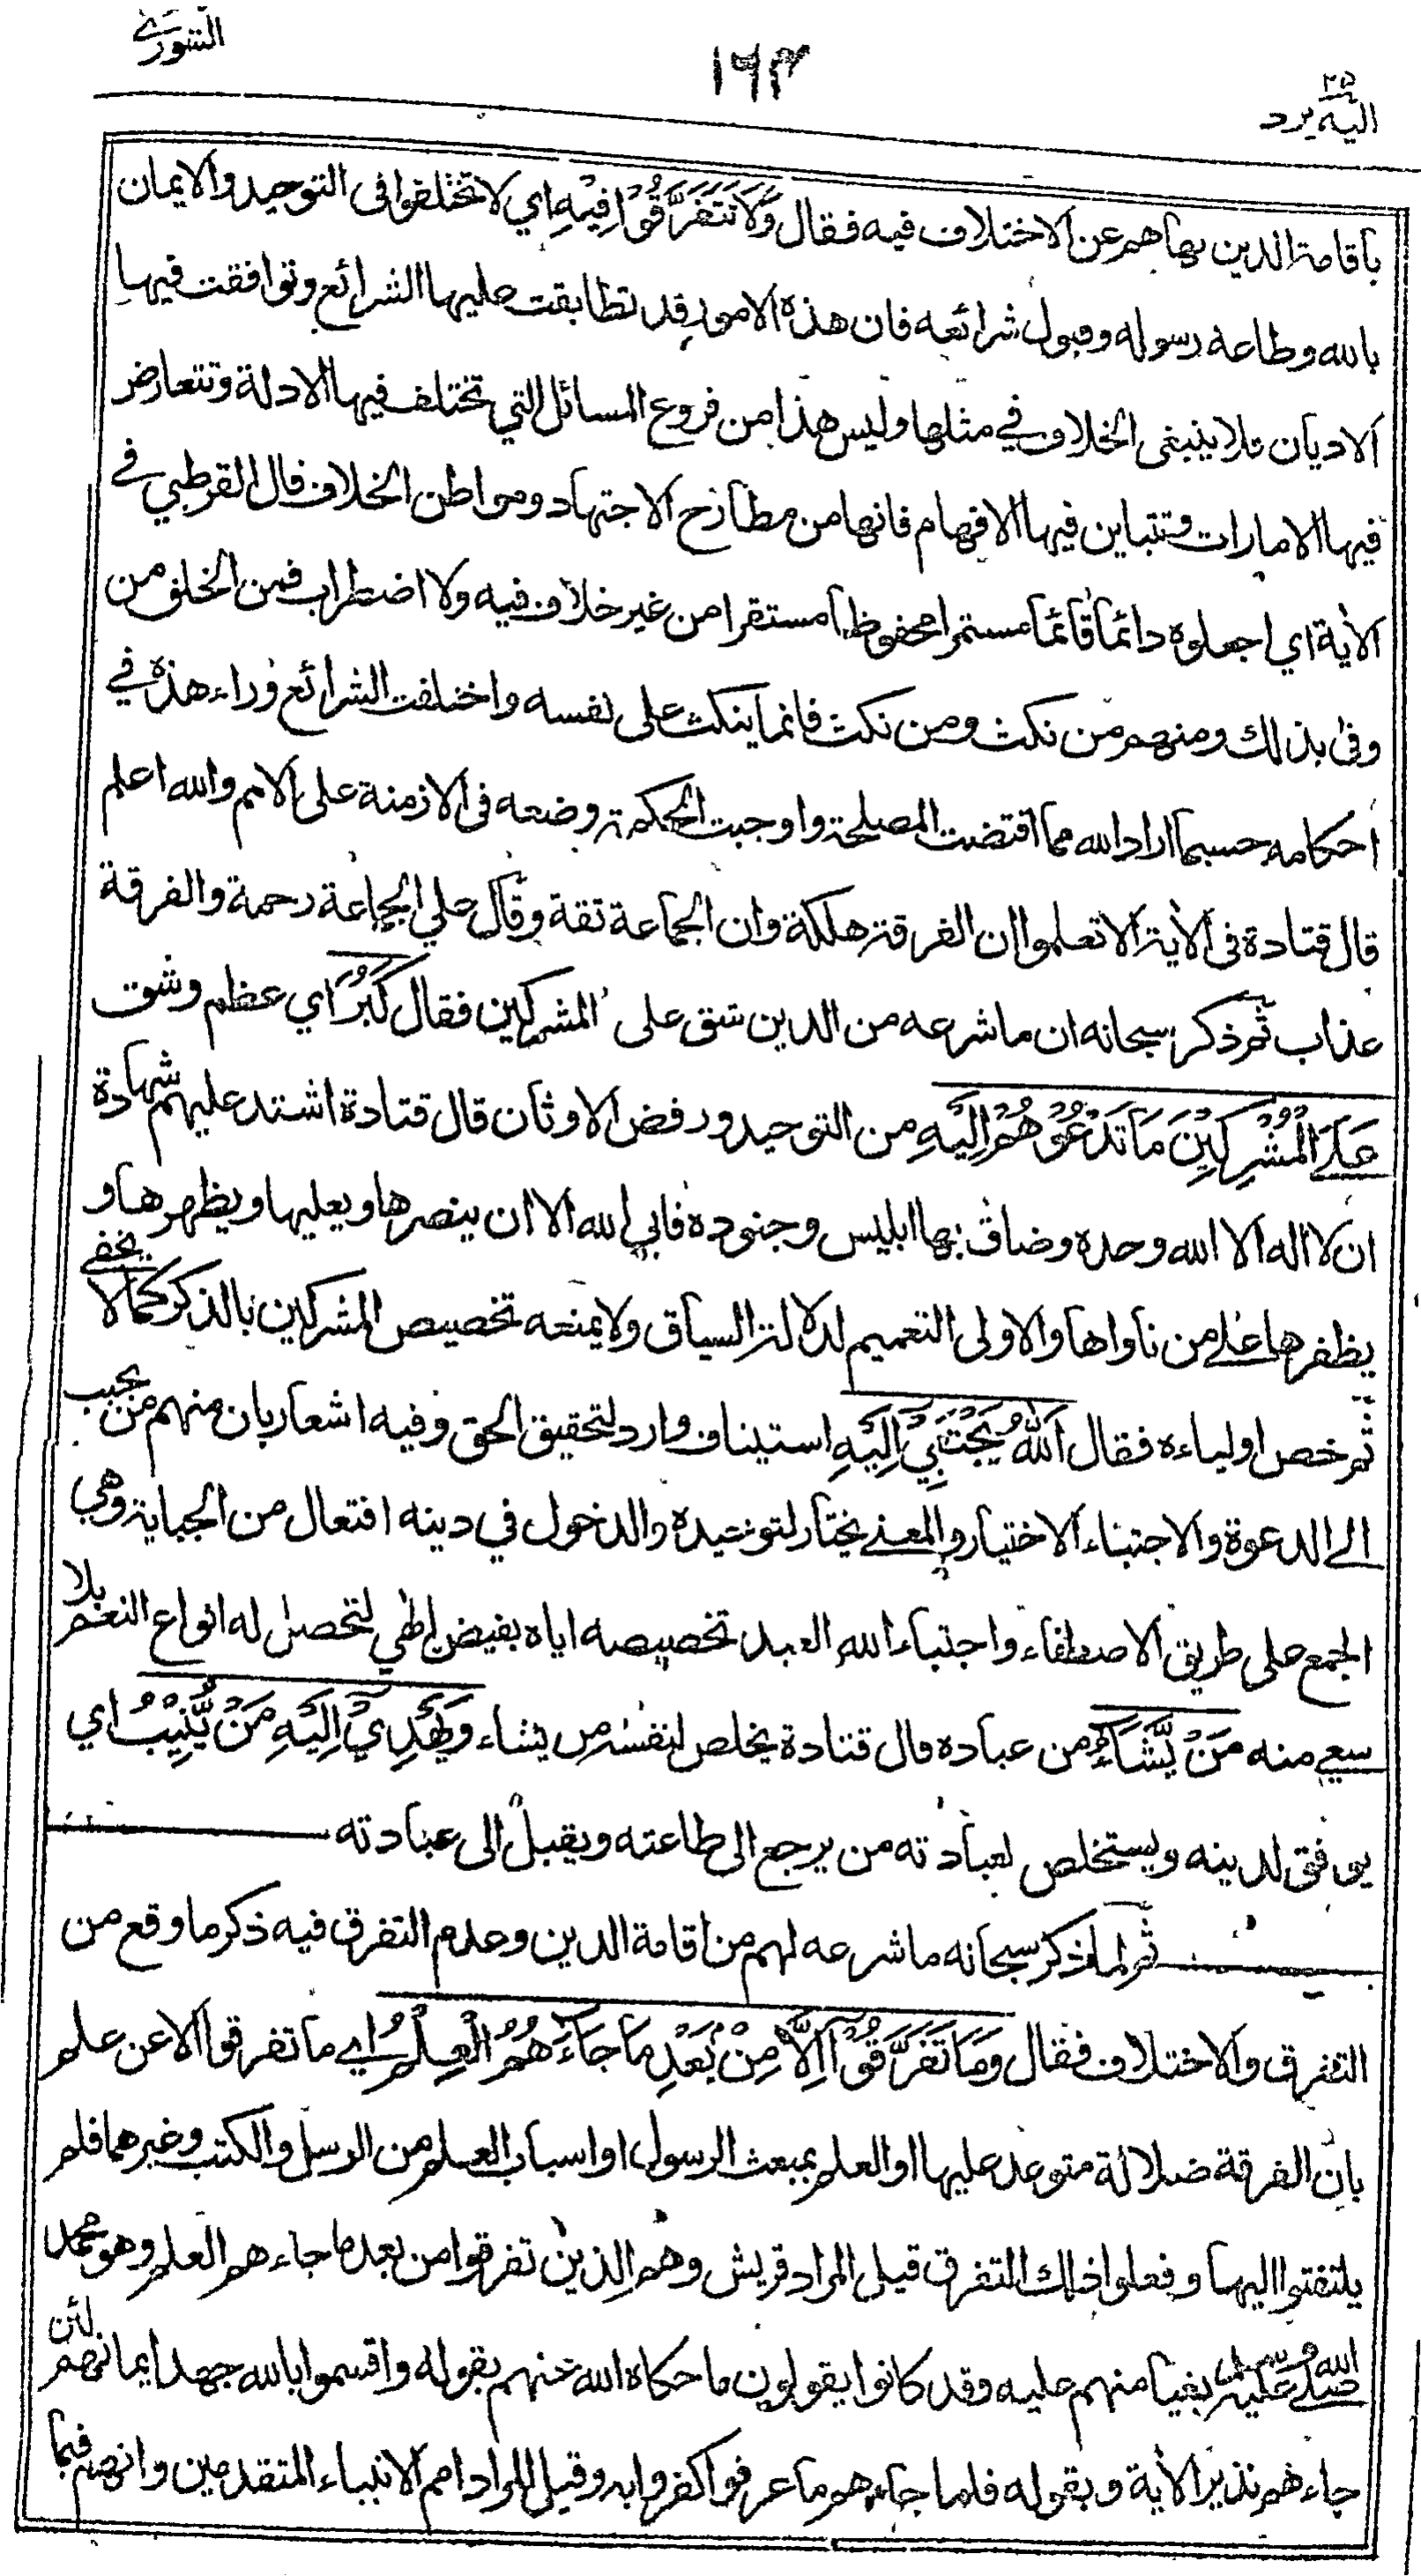 الشورى
١٦٣
٢٥
اليه يرد
باقامة الدين نهاهم عن الاختلاف فيه فقال وَلَا تَتَفَرَّقُوْا فِيْهِ اي لا تختلفوا فى التوحيد والايمان
بالله وطاعة رسوله وقبول شرائعه فان هذه الامور قد تطابقت عليها الشرائع وتوافقت فيها
الاديان فلا ينبغى الخلاف في مثلها وليس هذا من فروع المسائل التي تختلف فيها الادلة وتتعارض
فيها الامارات وتتباين فيها الافهام فانها من مطارح الاجتهاد ومواطن الخلاف قال القرطبي في
الاية اي اجعلوه دائما قائما مستمرا محفوظا مستقرا من غير خلاف فيه ولا اضطراب فمن الخلق من
وفى بذلك ومنهم من نكث ومن نكث فانما ينكث على نفسه واختلفت الشرائع وراء هذه في
احكامه حسبما اراد الله مما اقتضت المصلحة واوجبت الحكمة وضعه فى الازمنة على الامم والله اعلم
قال قتادة فى الاية الا تعلموا ان الفرقة هلكة وان الجماعة ثقة وقال علي الجماعة رحمة والفرقة
عذاب ثم ذكر سبحانه ان ما شرعه من الدين شق على المشركين فقال كَبُرَ اي عظم وشق
عَلَى الْمُشْرِكِيْنَ مَا تَدْعُوْهُمْ اِلَيْهِ من التوحيد ورفض الاوثان قال قتادة اشتد عليهم شهادة
ان لا اله الا الله وحده وضاق بها ابليس وجنوده فابى الله الا ان ينصرها ويعليها ويظهرها و
يظفرها على من ناواها والاولى التعميم لدلالة السياق ولا يمنعه تخصيص المشركين بالذكر كما لا يخفى
ثم خص اولياءه فقال اَللهُ يَجْتَبِيْ اِلَيْهِ استيناف وارد لتحقيق الحق وفيه اشعار بان منهم من يجيب
الى الدعوة والاجتباء الاختيار والمعنى يختار لتوحيده والدخول في دينه افتعال من الجباية وهي
الجمع على طريق الاصطفاء واجتباء الله العبد تخصيصه اياه بفيض الهي لتحصل له انواع النعم بلا
سعي منه مَنْ يَّشَآءُ من عباده قال قتادة يخلص لنفسه من يشاء وَيَهْدِيْ اِلَيْهِ مَنْ يُّنِيْبُ اي
يوفق لدينه ويستخلص لعبادته من يرجع الى طاعته ويقبل الى عبادته
ثم لما ذكر سبحانه ما شرعه لهم من اقامة الدين وعدم التفرق فيه ذكر ما وقع من
التفرق والاختلاف فقال وَمَا تَفَرَّقُوْا اِلَّا مِنْ بَعْدِ مَا جَاءَهُمُ الْعِلْمُ اي ما تفرقوا الا عن علم
بان الفرقة ضلالة متوعد عليها او العلم بمبعث الرسول او اسباب العلم من الرسل والكتب وغيرهما فلم
يلتفتوا اليها وفعلوا ذلك التفرق قيل المراد قريش وهم الذين تفرقوا من بعد ما جاءهم العلم وهو محمد
صلى الله عليه وسلم بغيا منهم عليه وقد كانوا يقولون ما حكاه الله عنهم بقوله واقسموا بالله جهد ايمانهم لئن
جاءهم نذير الاية وبقوله فلما جاءهم ما عرفوا كفروا به وقيل المراد امم الانبياء المتقدمين وانهم فيما